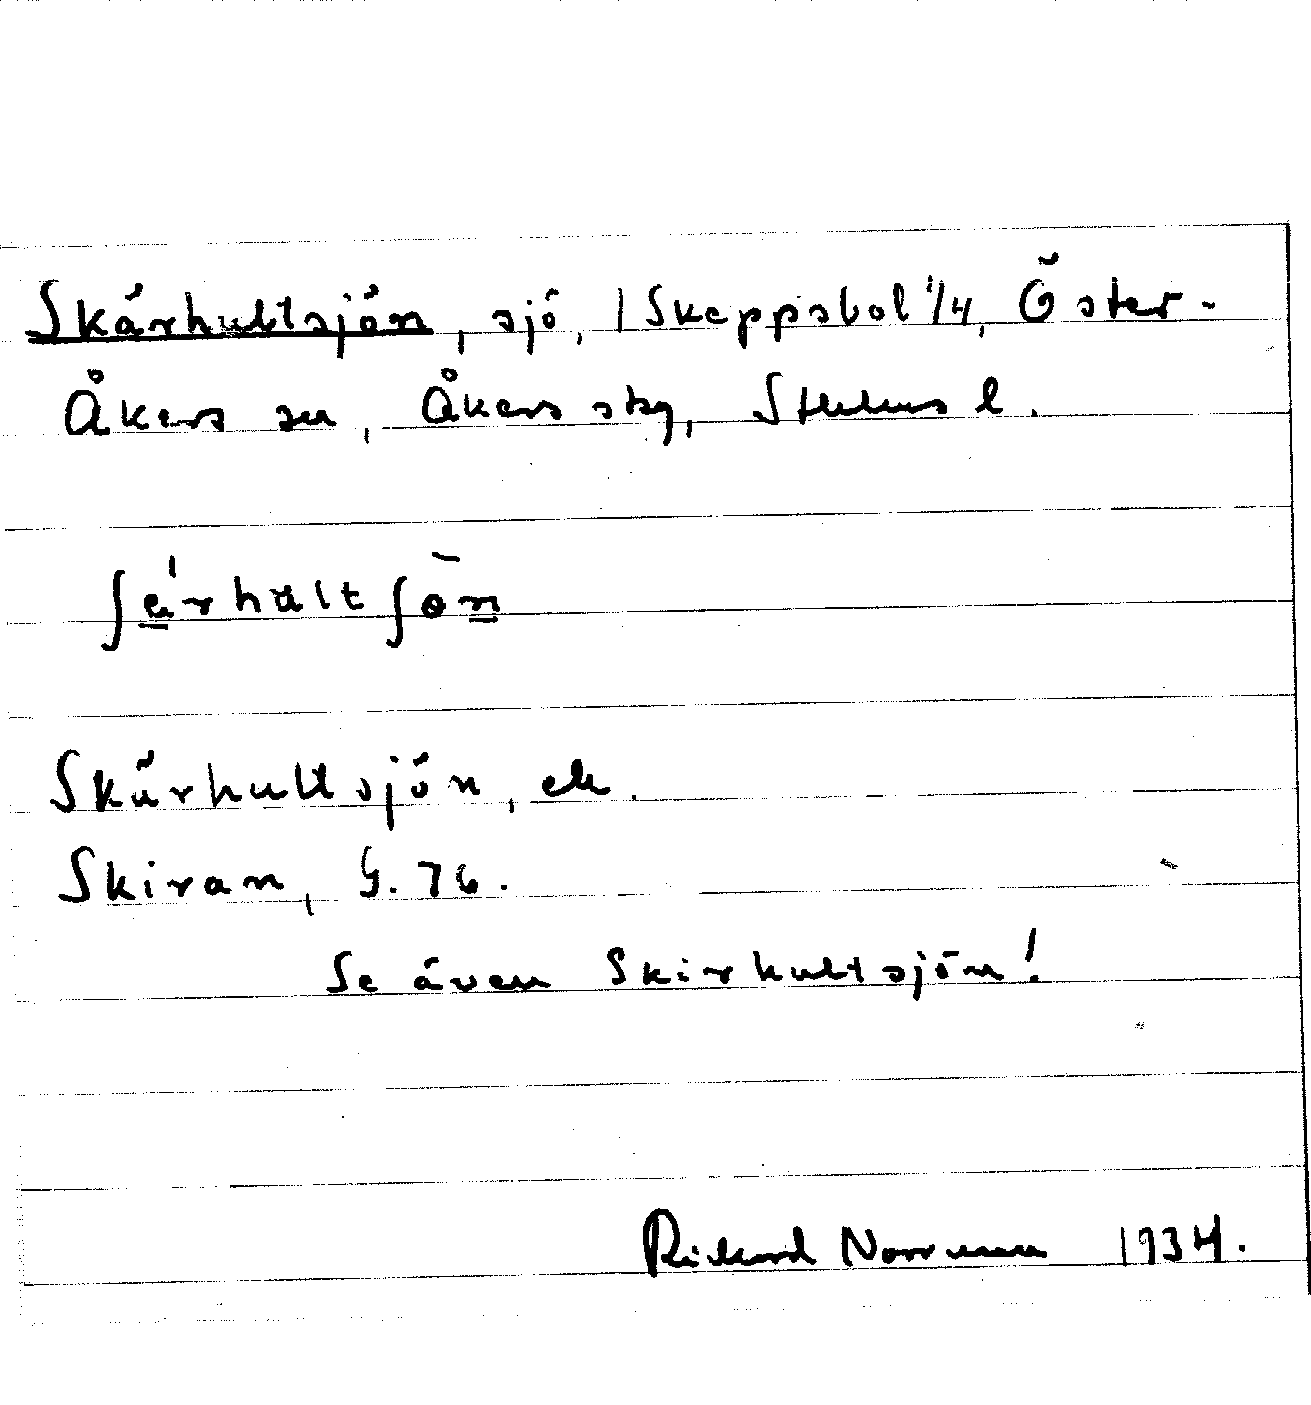 Skärhultsjön, sjö, 1 Skeppsbol 1/4, Öster-
Åkers sn, Åkers sbg, Sthlms l.
ʃä̱́rhultʃōn̲
Skärhultsjön, ek.
Skiran, G. 76.
Se även Skirhultsjön!
Rickard Norrman 1934.